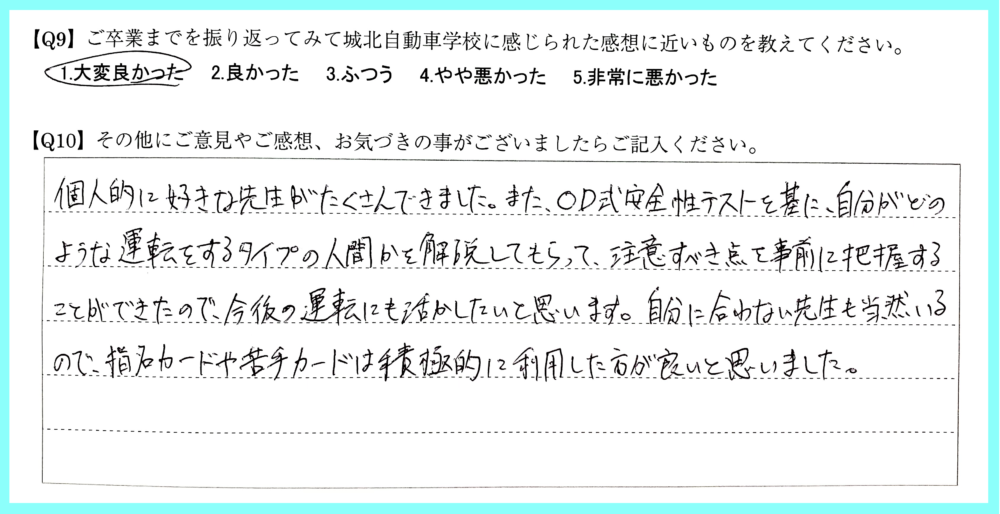 【Q9】ご卒業までを振り返ってみて城北自動車学校に感じられた感想に近いものを教えてください。
1.大変良かった 2.良かった 3.ふつう 4.やや悪かった 5.非常に悪かった
【Q10】その他にご意見やご感想、お気づきの事がございましたらご記入ください。
個人的に好きな先生がたくさんできました。また、OD式安全性テストを基に、自分がどの
ような運転をするタイプの人間かを解説してもらって、注意すべき点を事前に把握する
ことができたので、今後の運転にも活かしたいと思います。自分に合わない先生も当然いる
ので、指名カードや苦手カードは積極的に利用した方が良いと思いました。